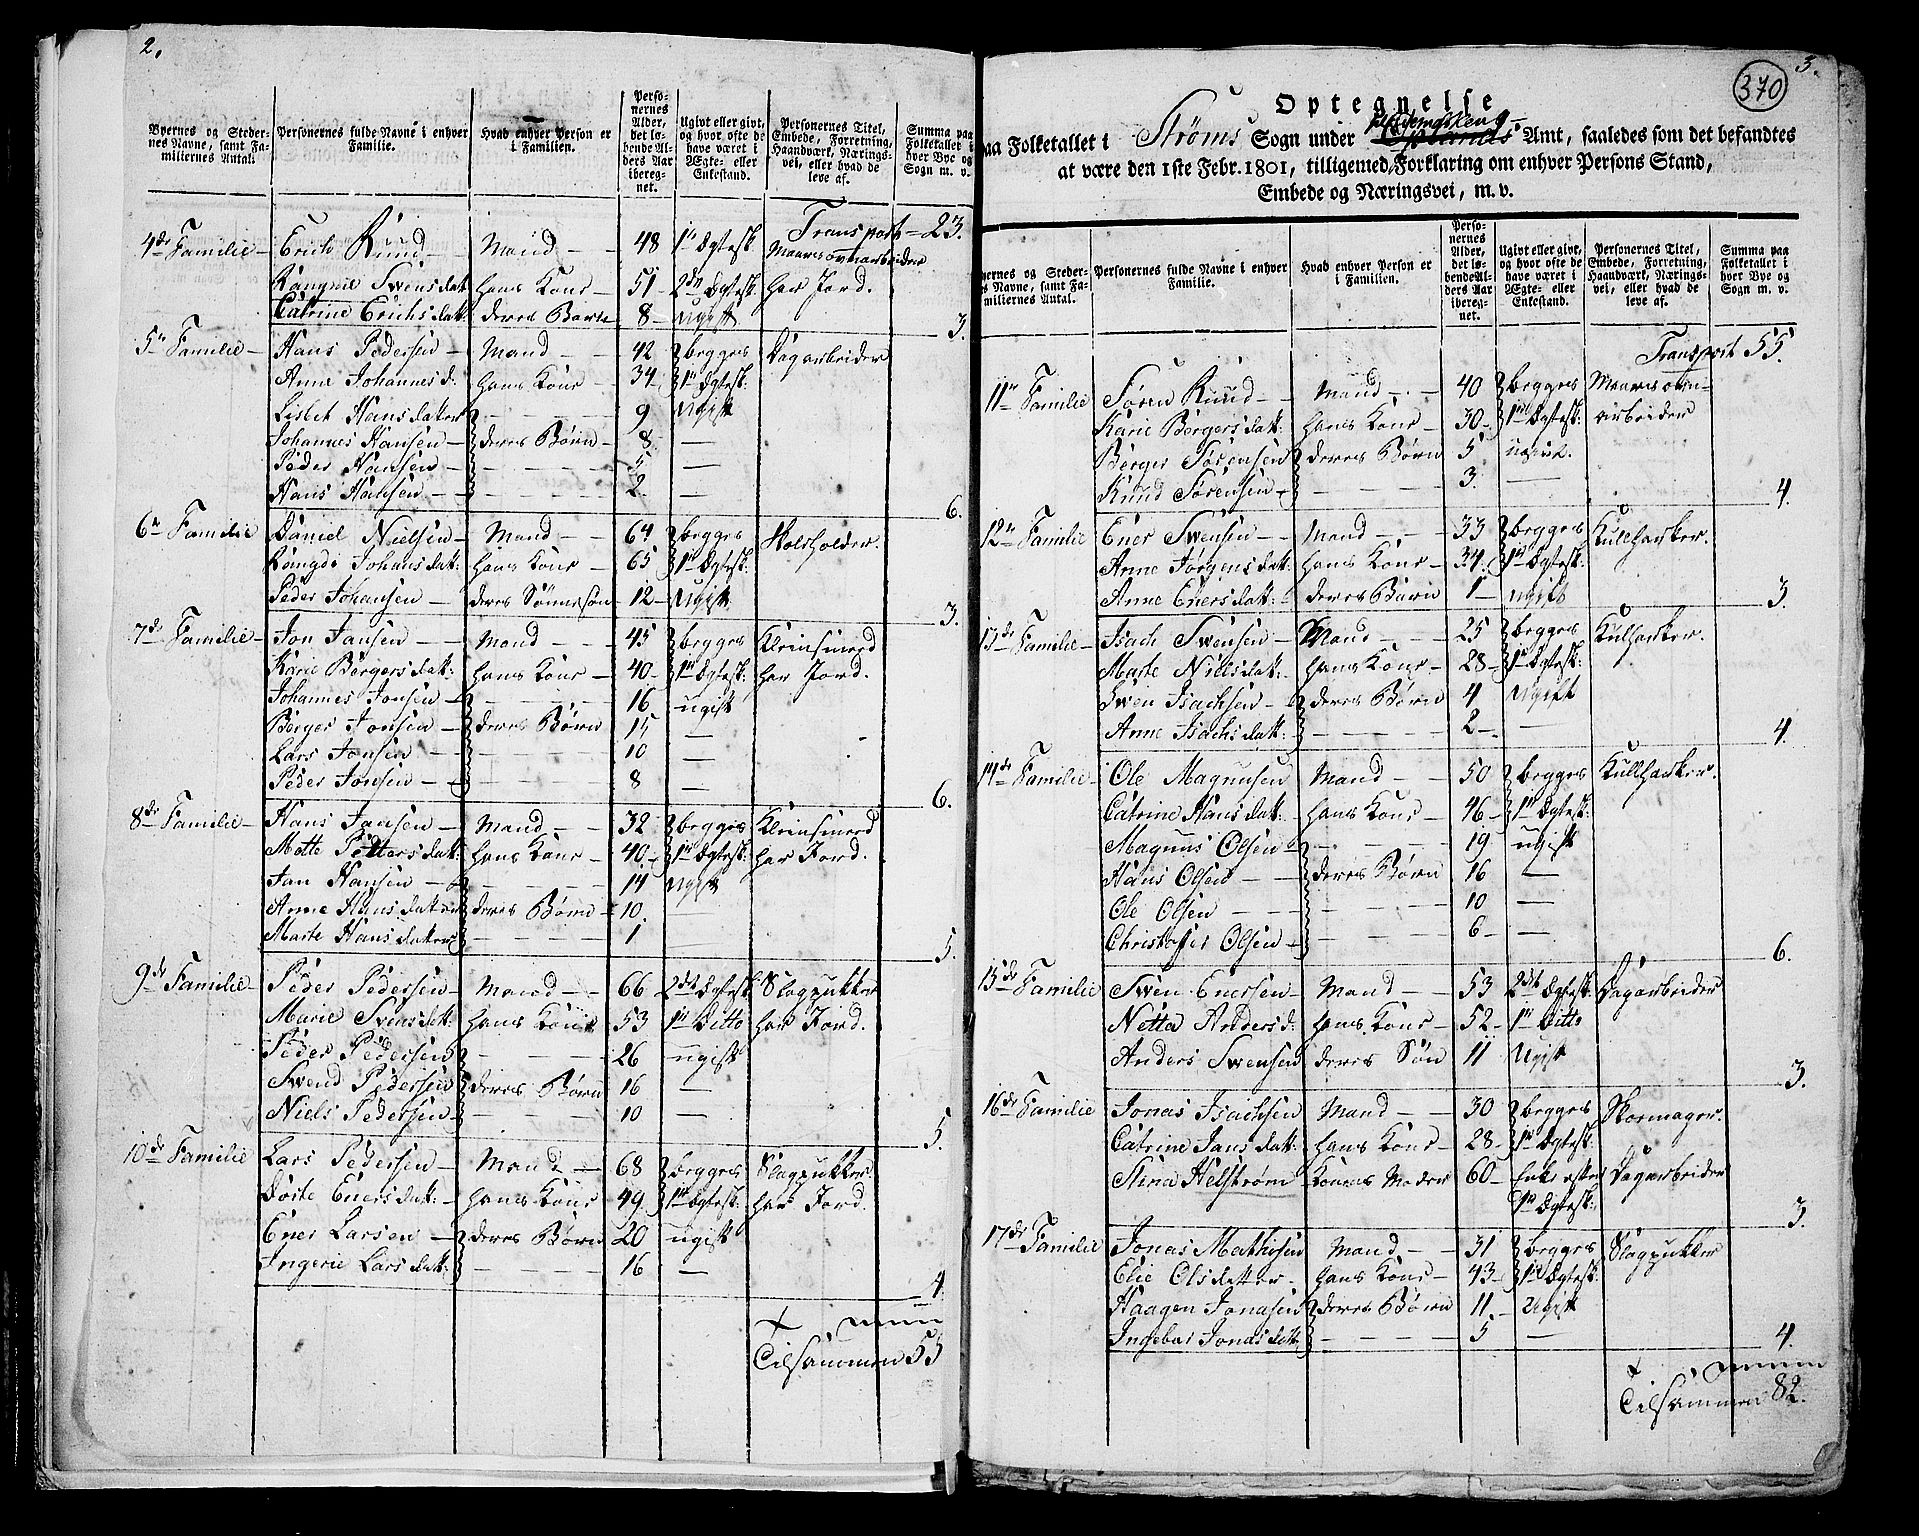 2.
Byernes og Steder-
nes Navne, samt Fa-
miliernes Antal.
Personernes fulde Navne i enhver
Familie.
Hvad enhver Person er
i Familien.
Perso-
nernes
Alder,
det lø-
bende Al-
ders Aar
iberegnet.
Ugivt eller givt,
og hvor ofte de
have været i
Ægte- eller
Enkestand.
Personernes Titel,
Embede, Forretning,
Haandværk, Nærings-
vei, eller hvad de
leve af.
Summa paa
Folketallet i
hver Bye og
Sogn m. v.
Transport = 23.
4de Familie Erich Ruud Mand 48 1te Ægtesk. Maursovnarbeider
Rangnie Swensdatt hans Kone 51 2den Ægtesk. har Jord.
Catrine Erichsdatt: deres Barn 8 Ugift
3.
5te Familie Hans Pedersen Mand 42 begges Dagarbeider
Anne Johannesd: hans Kone 34 1te Ægtesk:
Lisbet Hansdatter 9 Ugift
Johannes Hansen deres Børn 8 —
Peder Hansen 5 —
Hans Hansen 2. —
6.
6te Familie Daniel Nielsen Mand 64 begges Holsholder.
Rangdi Johansdatt: hans Kone 65 1te Ægtesk.
Peder Johansen deres Sønnesøn 12 Ugift.
3.
7de Familie Jon Jansen Mand 45 begges Kleinsmed
Karie Børgersdatt: hans Kone 40 1te Ægtesk: har Jord.
Johannes Jonsen 16 ugift
Børger Jonsen deres Børn 15 —
Lars Jonsen 10 —
Peder Jonsen 8 —
6.
8de Familie Hans Jansen Mand 32 begges Kleinsmed
Mette Pettersdatt: hans Kone 40 1te Ægtesk: har Jord.
Jan Hansen 14 Ugift
Anne Hansdatter deres Børn 10. —
Marte Hansdatter 1
5.
9de Familie Peder Pedersen Mand 66 2det Ægtesk. Slagpukker
Marie Svensdatt: hans Kone 53 1te Ditto har Jord.
Peder Pedersen 26 ugift
Swend Pedersen deres Børn 16 —
Niels Pedersen 10 —
5.
10de Familie Lars Pedersen Mand 68 begges Slagpukker
Dorte Enersdatt: hans Kone 49 1te Ægtesk: har Jord.
Ener Larsen deres Børn 20 ugift
Ingerie Larsdatt: 16 —
4.
Tilsammen 55
3.
370
Optegnelse
paa Folketallet i Strøms Sogn under Amt, saaledes som det befandtes
at være den 1ste Febr. 1801, tilligemed Forklaring om enhver Persons Stand,
Embede og Næringsvei, m. v.
nernes og Steder-
s Navne, samt Fa-
miliernes Antal.
Personernes fulde Navne i enhver
Familie.
Hvad enhver Person er
i Familien.
Perso-
nernes
Alder,
det lø-
bende Al-
ders Aar
iberegnet.
Ugivt eller givt,
og hvor ofte de
have været i
Ægte- eller
Enkestand.
Personernes Titel,
Embede, Forretning,
Haandværk, Nærings-
vei, eller hvad de
leve af.
Summa paa
Folketallet i
hver Bye og
Sogn m. v.
Transport 55.
11te Familie Søren Ruud Mand 40 begges Maursovn-
Karie Børgersdatt: hans Kone 30 1te Ægtesk: arbeider
Børger Sørensen deres Børn 5 ugivt.
Knud Sørensen 3. —
4.
12te Familie Ener Swensen Mand 33 begges Kulhanker.
Anne Jørgensdatt: hans Kone 34 1te Ægtesk:
Anne Enersdatt: deres Barn 1 ugift
3.
13de Familie Isach Swensen Mand 25 begges Kulhanker.
Marte Nielsdatt: hans Kone 28 1te Ægtesk:
Swen Isachsen deres Børn 4 Ugift
Anne Isachsdatt: 2
4.
14de Familie Ole Magnusen Mand 50 begges Kulhanker.
Catrine Hansdatt: hans Kone 46 1te Ægtesk:
Magnus Olsen 19 ugift
Hans Olsen deres Børn 16 —
Ole Olsen 10 —
Christoffer Olsen 6 —
6.
15de Familie Swen Enersen Mand 53 2det Ægtesk: Dagarbeider
Netta Andersd: hans Kone 52 1te Ditto
Anders Swensen deres Søn 11 Ugift
3.
16de Familie Jonas Isachsen Mand 30 begges Skomager.
Catrine Jansdatt: hans Kone 28 1te Ægtesk:
Stina Helstrøm Konens Moder 60 Enke efter Dagarbeider
1te Ægtesk:
3.
17de Familie Jonas Mathisen Mand 31 begges Slagpukker
Elie Olsdatter hans Kone 43 1te Ægtesk:
Haagen Jonasen deres Børn 11. Ugift
Ingebor Jonasdatt. 5 —
4.
Tilsammen 82.